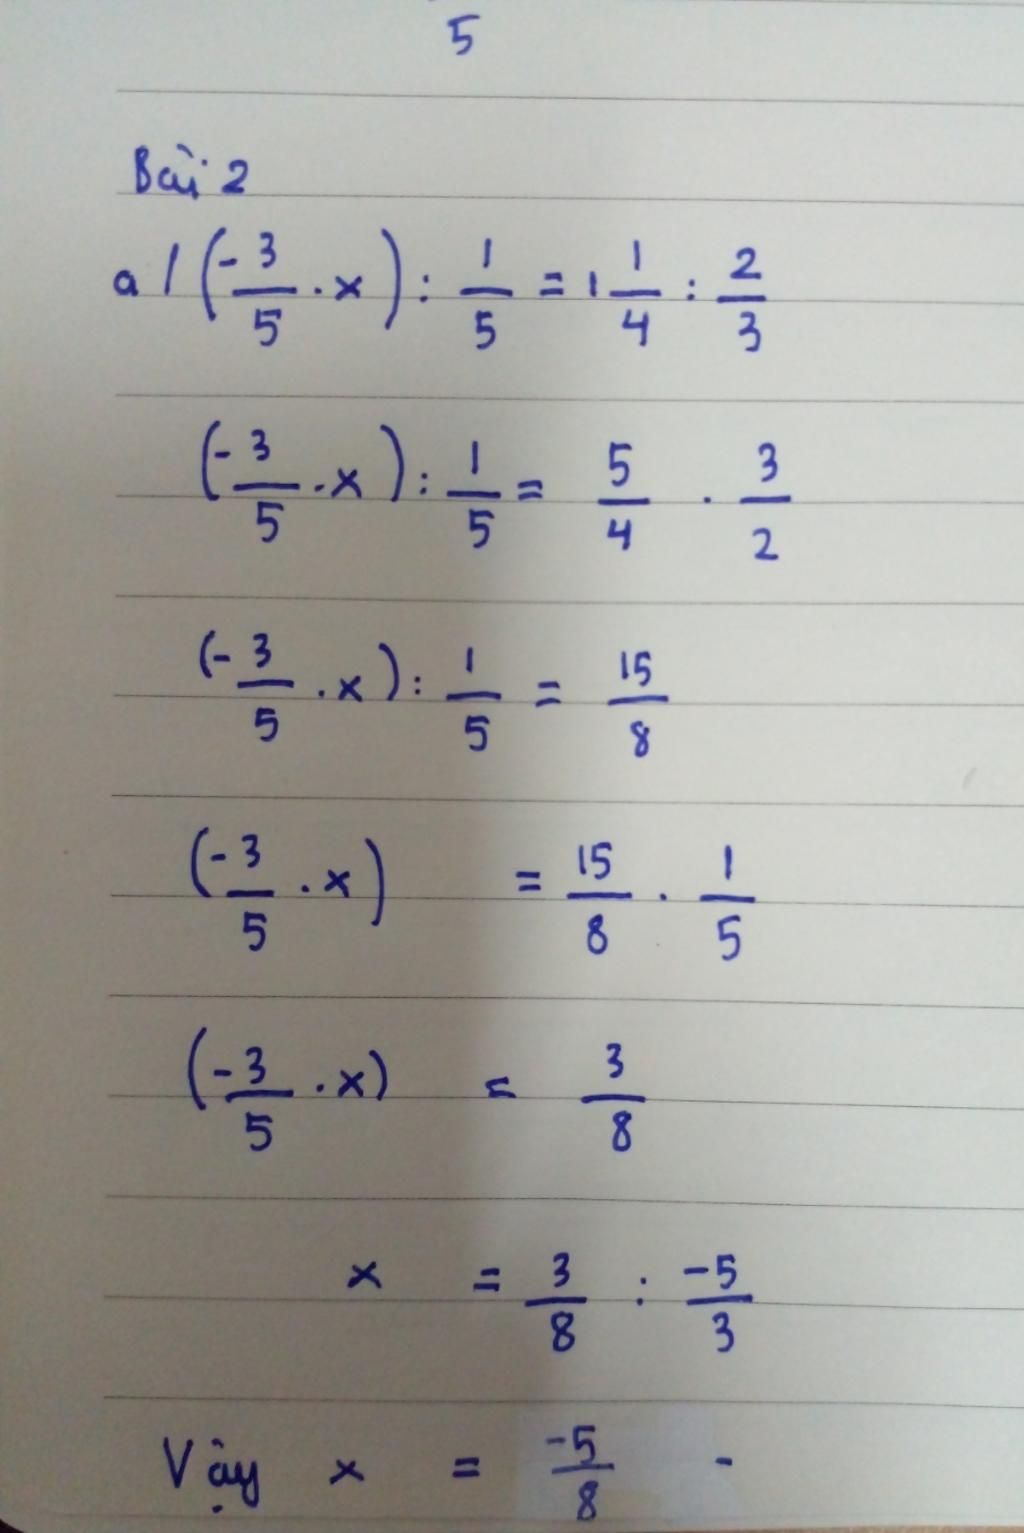 5
Bài 2
a/ (-3/5 . x) : 1/5 = 1 1/4 : 2/3
(-3/5 . x) : 1/5 = 5/4 . 3/2
(-3/5 . x) : 1/5 = 15/8
(-3/5 . x) = 15/8 . 1/5
(-3/5 . x) = 3/8
x = 3/8 : -5/3
Vậy x = -5/8 -